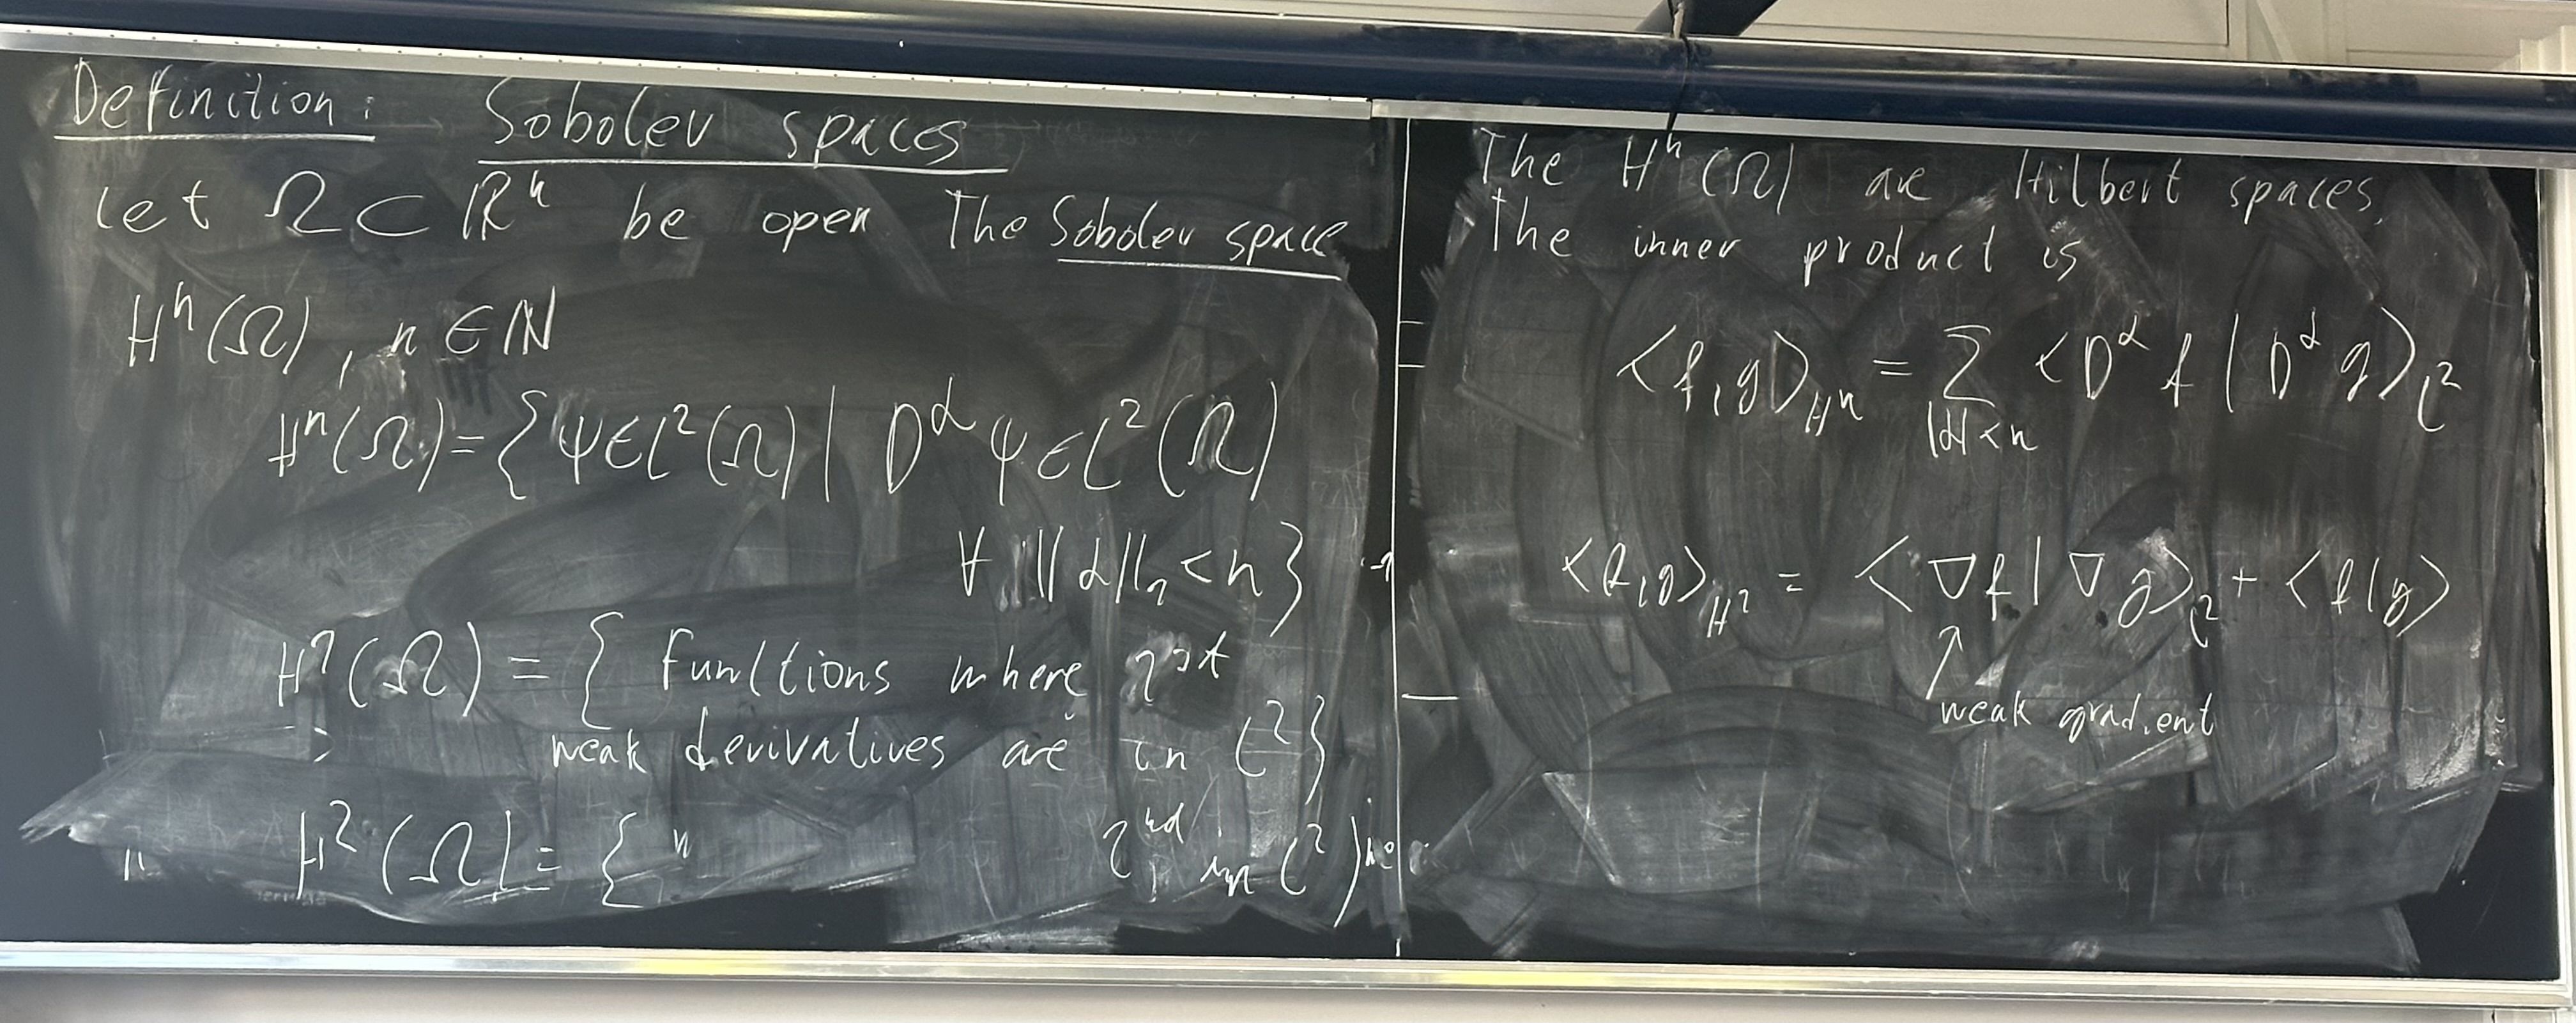 Definition: Sobolev spaces
Let Ω ⊂ ℝⁿ be open The Sobolev space
Hⁿ(Ω), n ∈ ℕ
Hⁿ(Ω) = { ψ ∈ L²(Ω) | D^α ψ ∈ L²(Ω)
∀ ||α||₁ < n }
H¹(Ω) = { Functions where 1st
weak derivatives are in L² }
H²(Ω) = { " 2nd in L² }
The Hⁿ(Ω) are Hilbert spaces.
The inner product is
<f,g>_{Hⁿ} = Σ_{|α|<n} <D^α f | D^α g>_{L²}
<f,g>_{H¹} = <∇f | ∇g>_{L²} + <f|g>
↑
weak gradient